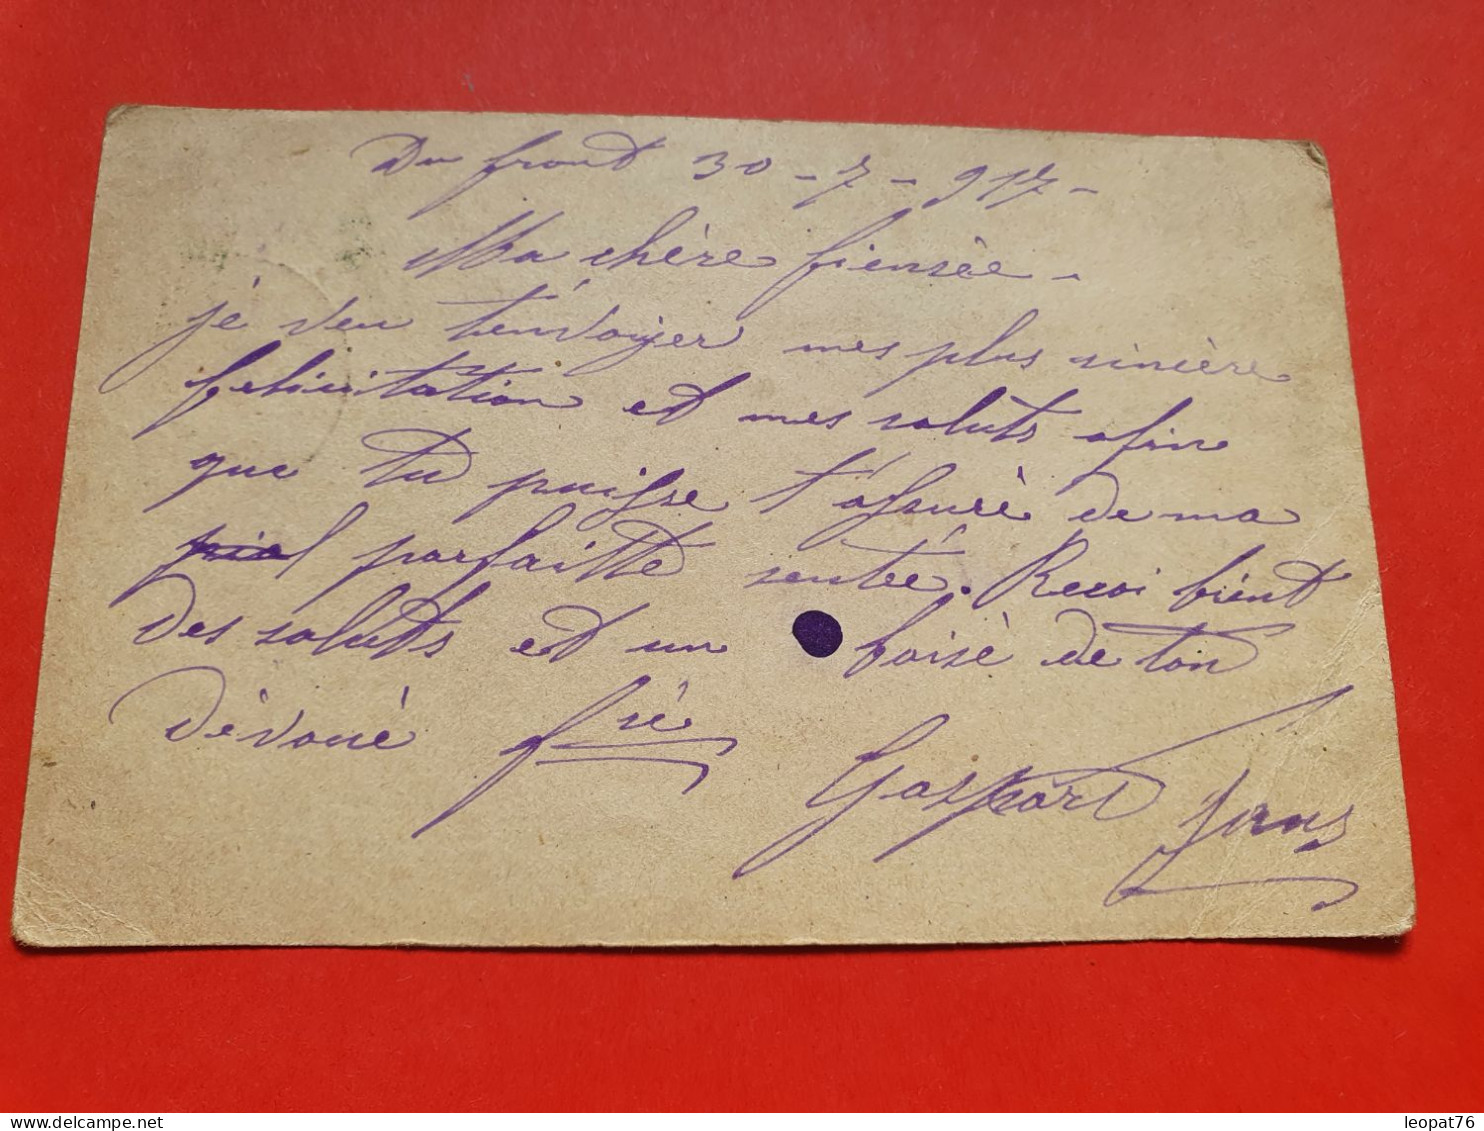 Du front 30 - 7 - 917 -
Ma chère fiensèe -
jé veu t'envoyer mes plus sincère
felicitation et mes saluts afin
que tu puisse t'assuré de ma
parfaitte sentée. Recoi bient
des saluts et un baisé de ton
dévoué fré
Gaspard
leopat76
www.delcampe.net